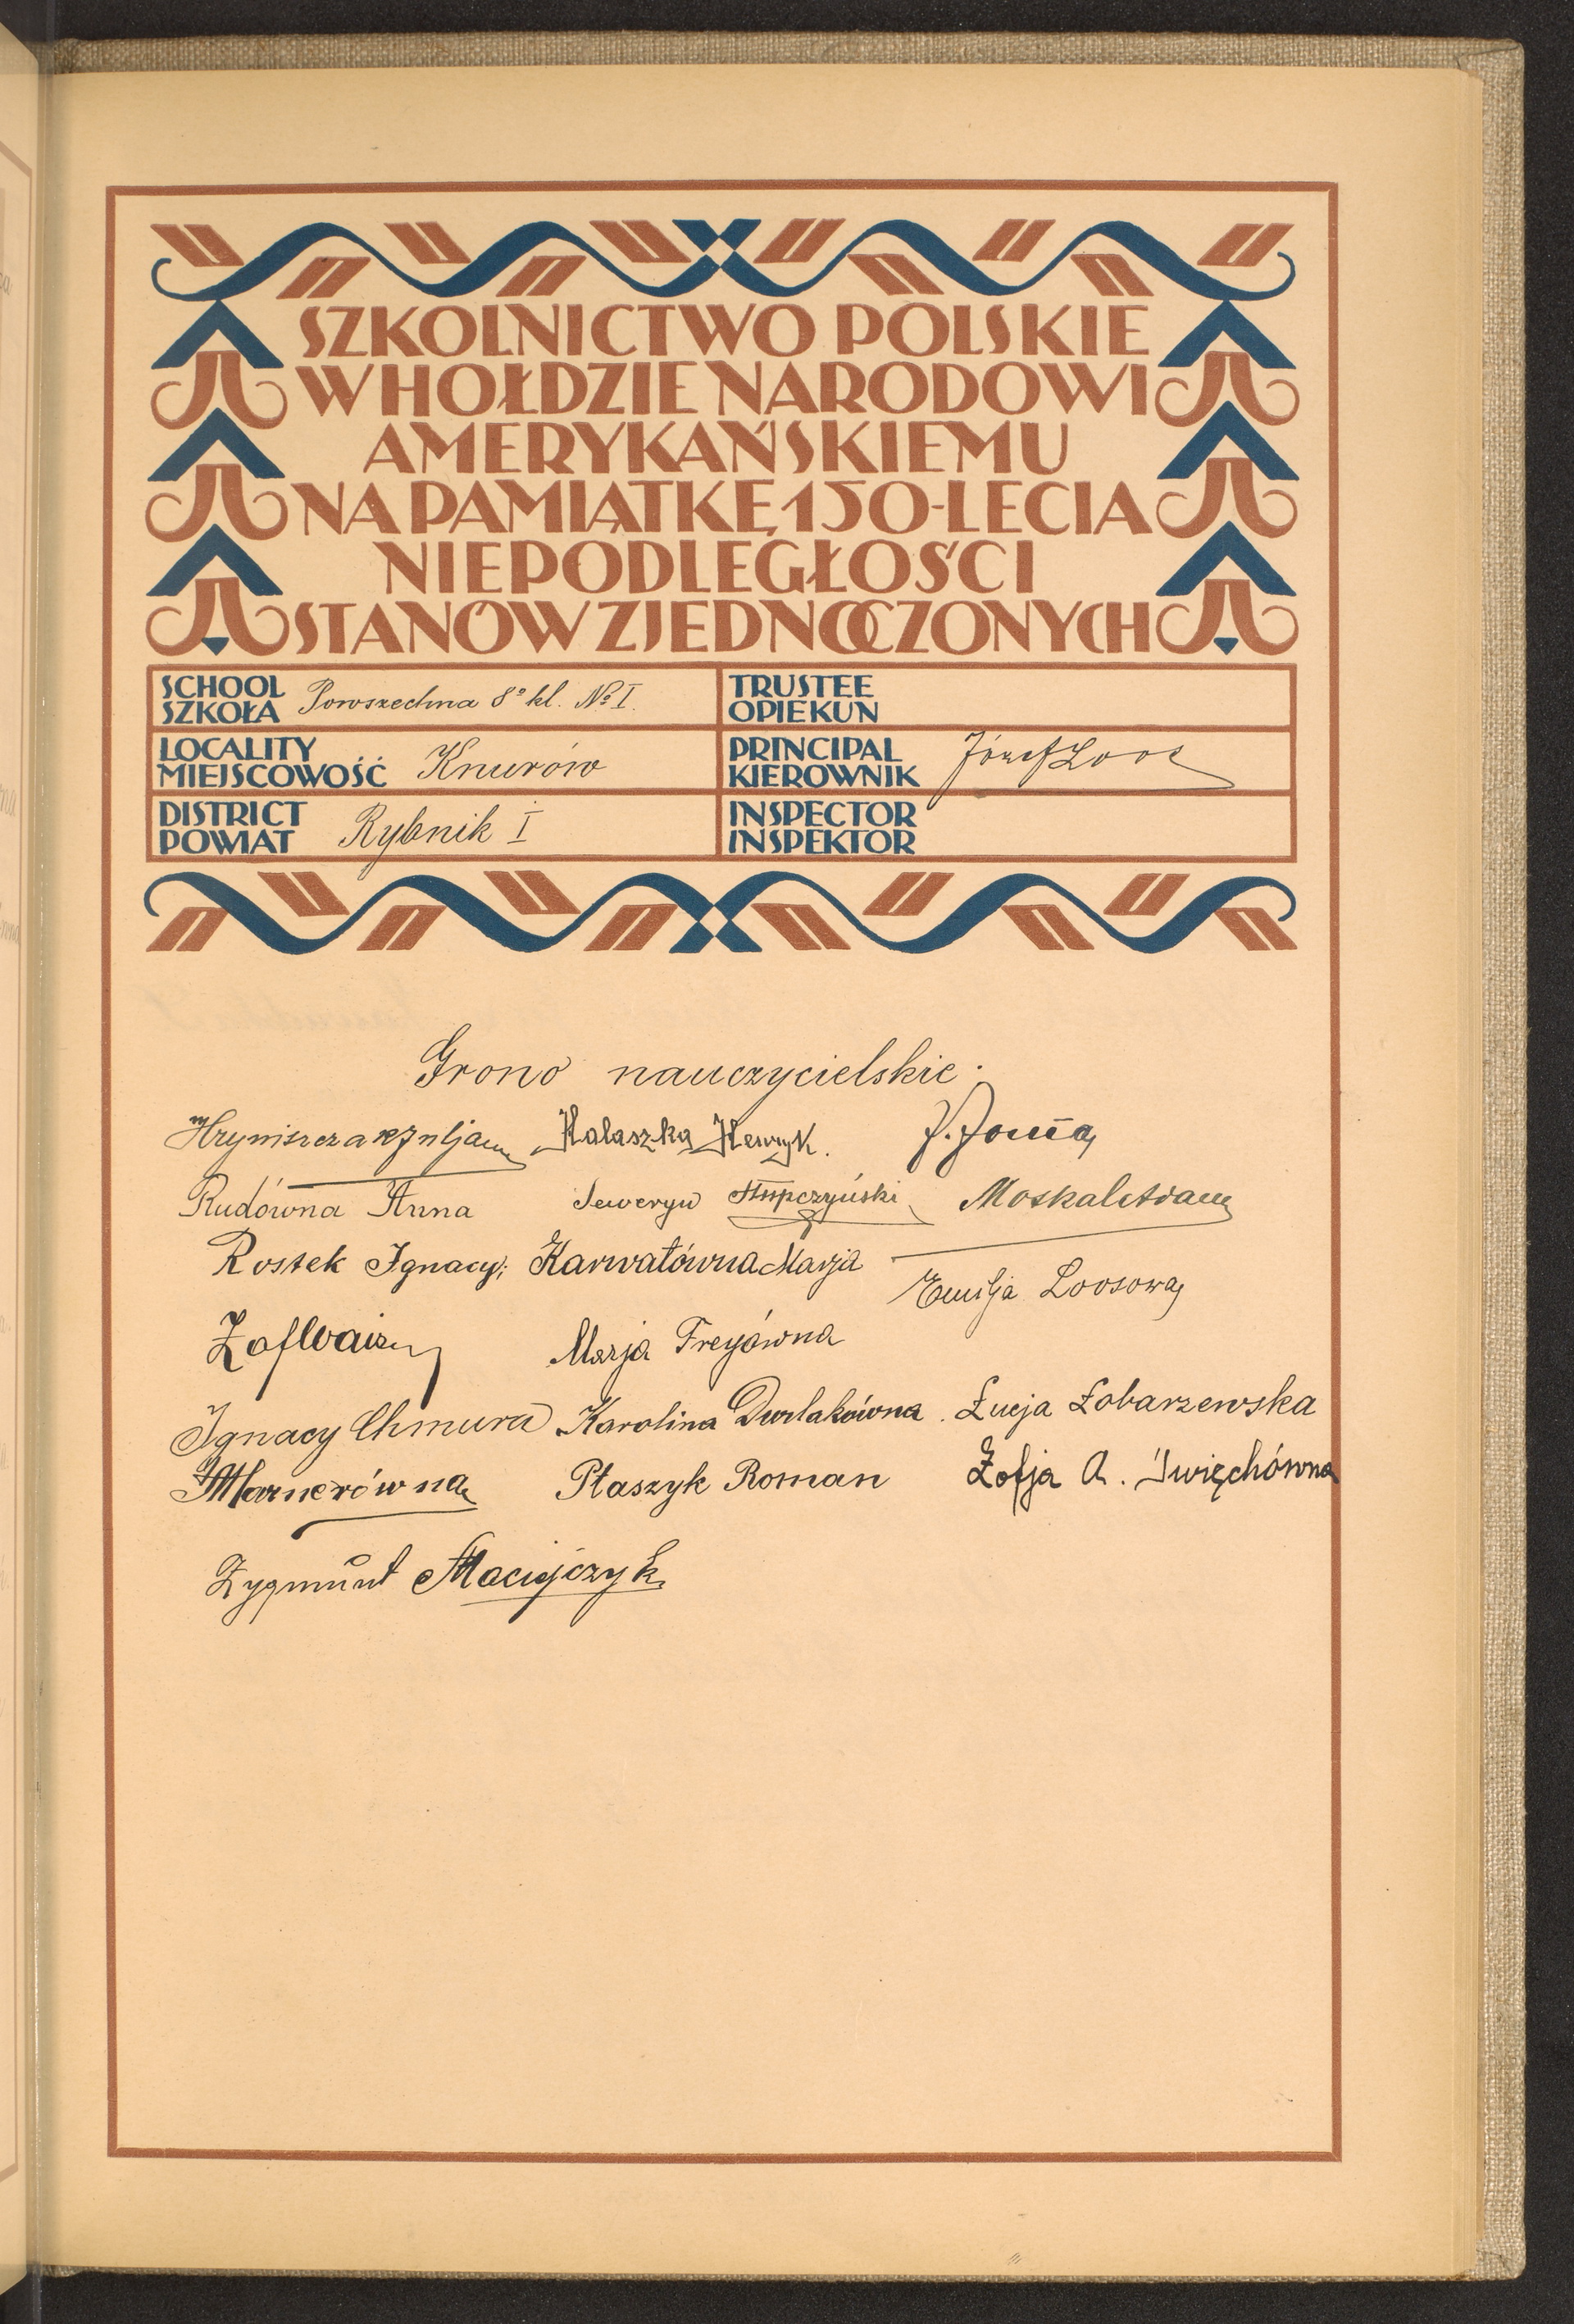 SZKOLNICTWO POLSKIE
W HOŁDZIE NARODOWI
AMERYKAŃSKIEMU
NA PAMIĄTKĘ 150-LECIA
NIEPODLEGŁOŚCI
STANÓW ZJEDNOCZONYCH
SCHOOL
SZKOŁA Powszechna 8º kl. № I.
TRUSTEE
OPIEKUN
LOCALITY
MIEJSCOWOŚĆ Knurów
PRINCIPAL
KIEROWNIK Józef Loos
DISTRICT
POWIAT Rybnik I
INSPECTOR
INSPEKTOR
Grono nauczycielskie.
Hryniszczak Juljan Kałaszka Henryk.
Rudówna Anna Seweryn Słupczyński Moskal Adam
Rostek Ignacy; Karwatówna Marja
Emilja Loosowa
Marja Freyówna
Ignacy Chmura Karolina Durlakówna. Łucja Łobarzewska
Ptaszyk Roman Zofja A. Święchówna
Zygmunt Maciejczyk